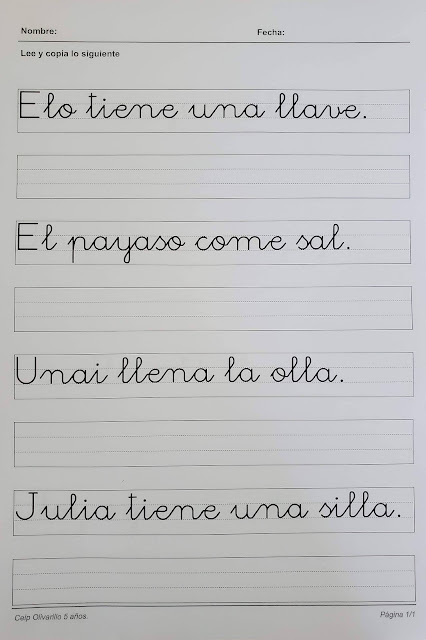 Nombre: Fecha:
Lee y copia lo siguiente
Elo tiene una llave.
El payaso come sal.
Unai llena la olla.
Julia tiene una silla.
Ceip Olivarillo 5 años. Página 1/1